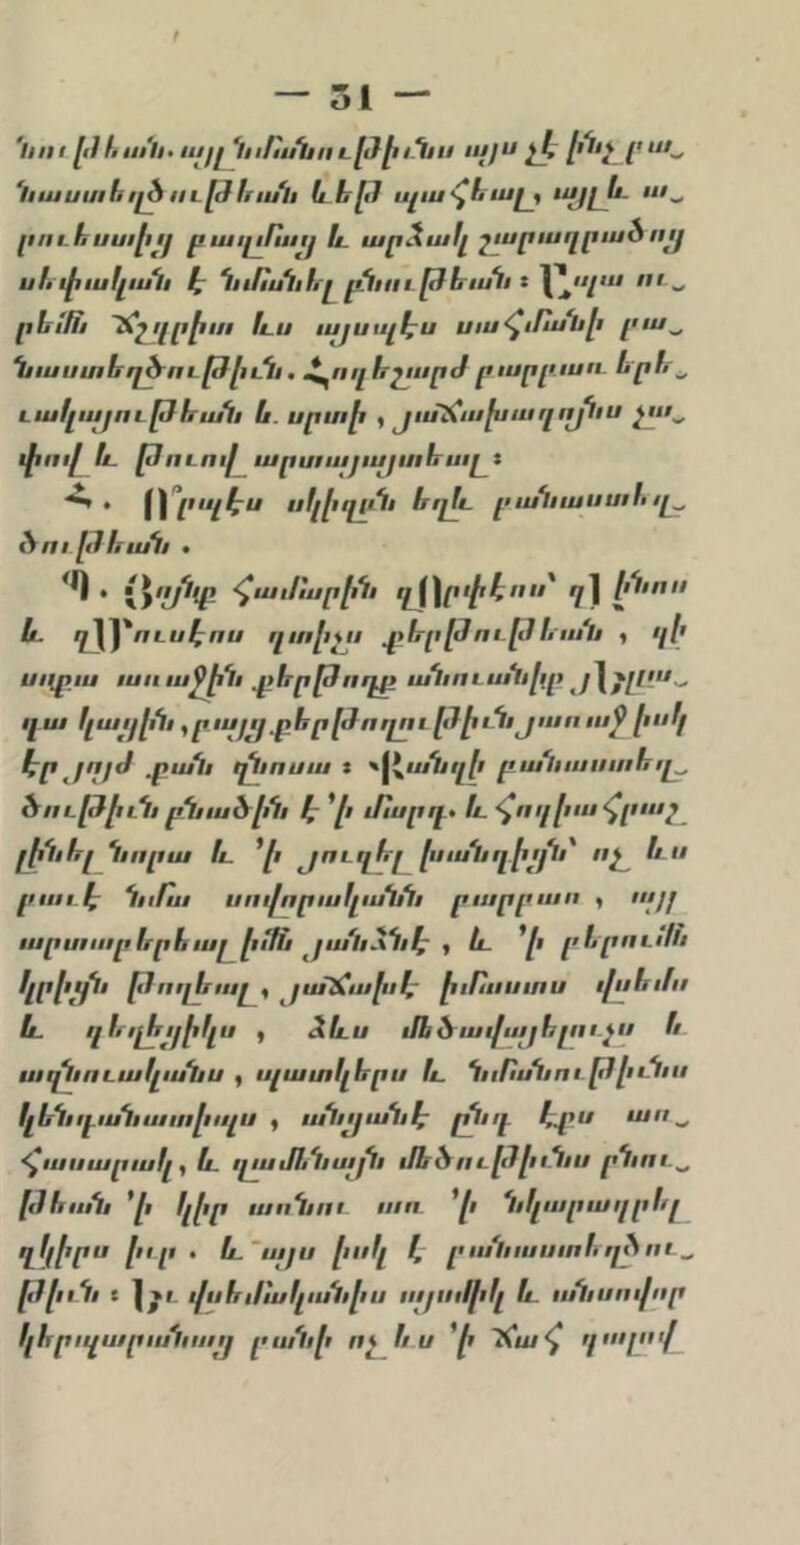 — 31 —
նութեան. այլ նմանութիւնս այս չէ ինչ բա֊
նաստեղծութեան ևեթ պահեալ, այլև ա֊
րուեստից բազմաց և արձակ շարադրածոց
սեփական է նմանել բնութեան ։ Ապա ու֊
րեմն ճշգրիտ ևս այսպէս սահմանի բա֊
նաստեղծութիւն. Հոգեշարժ բարբառ երե֊
ւակայութեան և. սրտի , յաճախագոյնս չա֊
փով և թուով արտայայտեալ ։
Հ . Ո՞րպէս սկիզբն եղև բանաստեղ֊
ծութեան .
Պ . Յոյնք համարին զՈրփէոս՝ զԼինոս
և զՄուսէոս գտիչս քերթութեան , զի
սոքա առաջին քերթողք անուանիք յԵլլա֊
դա կացին , բայց քերթողութիւն յառաջ իսկ
էր յոյժ քան զնոսա ։ Քանզի բանաստեղ֊
ծութիւն բնածին է ՚ի մարդ. և հոգիահրաշ
լինել նորա և ՚ի յուզել խանդիցն՝ ոչ ևս
բաւէ նմա սովորականն բարբառ , այլ
արտաբերեալ իմն յանձնէ , և ՚ի բերումն
կրիցն թողեալ, յաճախէ իմաստս վսեմս
և գեղեցիկս , ձևս մեծավայելուչս և
ազնուականս , պատկերս և նմանութիւնս
կենդանատիպս , անցանէ ընդ էքս առ֊
հասարակ, և զամենայն մեծութիւնս բնու֊
թեան ՚ի կիր առնու առ ՚ի նկարագրել
զկիրս իւր . և այս իսկ է բանաստեղծու֊
թիւն ։ Եւ վսեմականիս այսմիկ և անսովոր
կերպարանաց բանի ոչ ևս ՚ի ճահ գալով